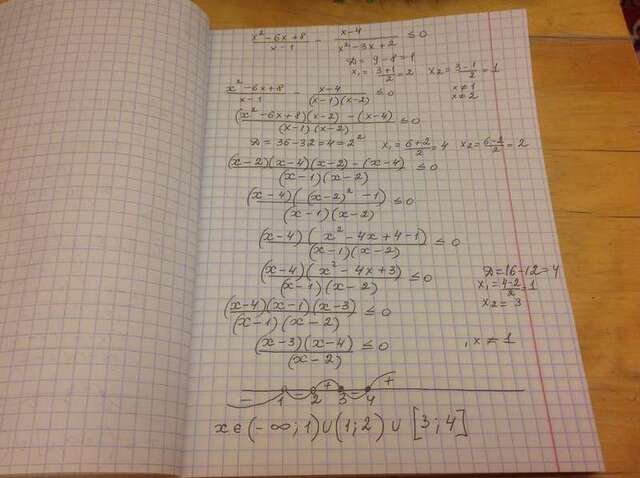 (x²-6x+8)/(x-1) - (x-4)/(x²-3x+2) ≤ 0
D = 9-8=1
x₁ = (3+1)/2 = 2 x₂ = (3-1)/2 = 1
(x²-6x+8)/(x-1) - (x-4)/((x-1)(x-2)) ≤ 0 x≠1 x≠2
((x²-6x+8)(x-2)-(x-4))/((x-1)(x-2)) ≤ 0
D = 36-32=4=2² x₁ = (6+2)/2 = 4 x₂ = (6-2)/2 = 2
((x-2)(x-4)(x-2)-(x-4))/((x-1)(x-2)) ≤ 0
((x-4)((x-2)²-1))/((x-1)(x-2)) ≤ 0
((x-4)(x²-4x+4-1))/((x-1)(x-2)) ≤ 0
((x-4)(x²-4x+3))/((x-1)(x-2)) ≤ 0 D=16-12=4
x₁ = (4-2)/2 = 1
x₂ = 3
((x-4)(x-1)(x-3))/((x-1)(x-2)) ≤ 0
((x-3)(x-4))/(x-2) ≤ 0 , x ≠ 1
- - + - +
1 2 3 4
x∈(-∞;1)∪(1;2)∪[3;4]